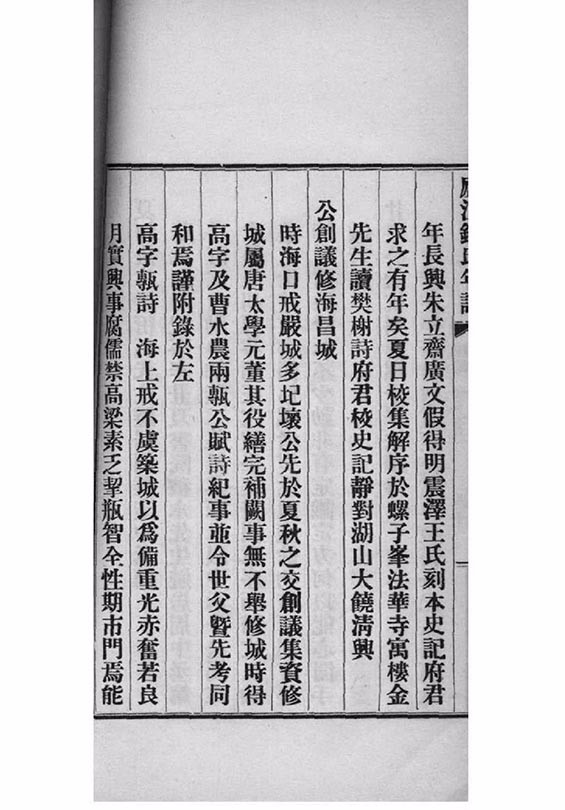 年長興朱立齋廣文假得明震澤王氏刻本史記府君
求之有年矣夏日校集解序於螺子峯法華寺寓樓金
先生讀樊榭詩府君校史記靜對湖山大饒清興
公創議修海昌城
時海口戒嚴城多圮壞公先於夏秋之交創議集資修
城屬唐太學元董其役繕完補闕事無不舉修城時得
高字及曹水農兩甎公賦詩紀事並令世父暨先考同
和焉謹附錄於左
高字甎詩 海上戒不虞築城以爲備重光赤奮若良
月實興事腐儒禁高梁素乏挈瓶智全性期市門焉能